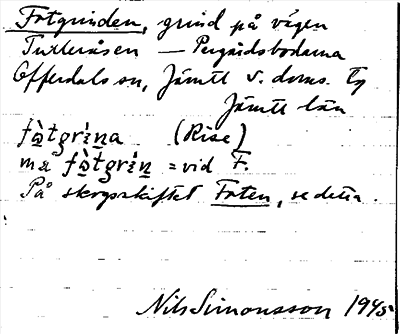 Fotgrinden, grind på vägen
Tulleråsen — Pergåsbodarna
Offerdals sn, Jämtl v. doms. Tg
Jämtl län
fòtgrìna (Rise)
ma fòtgrìn = vid F.
På skogsskiftet Foten, se detta.
Nils Simonsson 1945